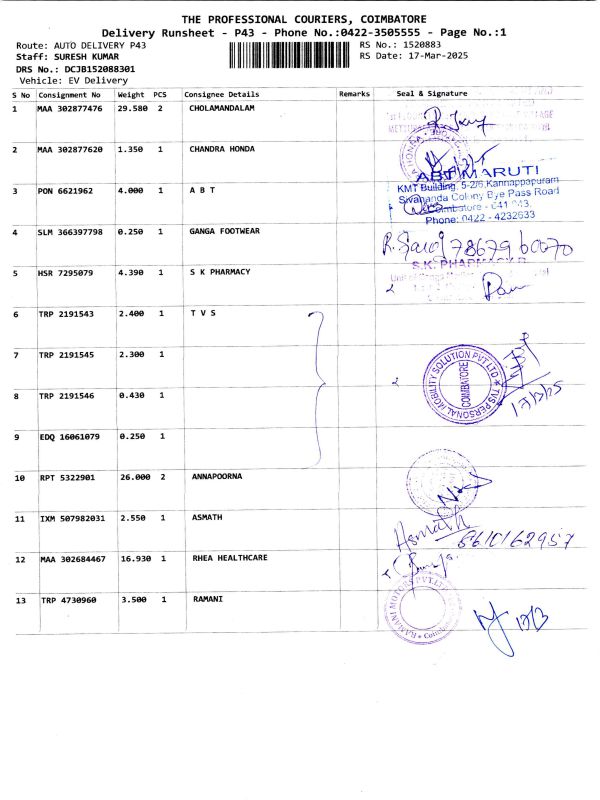 THE PROFESSIONAL COURIERS, COIMBATORE
Delivery Runsheet - P43 - Phone No.:0422-3505555 - Page No.:1
Route: AUTO DELIVERY P43 RS No.: 1520883
Staff: SURESH KUMAR RS Date: 17-Mar-2025
DRS No.: DCJB152088301
Vehicle: EV Delivery
S No Consignment No Weight PCS Consignee Details Remarks Seal & Signature
1 MAA 302877476 29.580 2 CHOLAMANDALAM
2 MAA 302877620 1.350 1 CHANDRA HONDA
3 PON 6621962 4.000 1 A B T
ABT MARUTI
KMT Building, 5-2/6, Kannappapuram
Sivananda Colony Bye Pass Road
Coimbatore - 641 043.
Phone: 0422 - 4232633
4 SLM 366397798 0.250 1 GANGA FOOTWEAR
5 HSR 7295079 4.390 1 S K PHARMACY
S.K. PHARMACY
6 TRP 2191543 2.400 1 T V S
7 TRP 2191545 2.300 1
TVS PERSONAL MOBILITY SOLUTION PVT LTD
COIMBATORE
17/3/25
8 TRP 2191546 0.430 1
9 EDQ 16061079 0.250 1
10 RPT 5322901 26.000 2 ANNAPOORNA
11 IXM 507982031 2.550 1 ASMATH
Asmath
8610162957
12 MAA 302684467 16.930 1 RHEA HEALTHCARE
13 TRP 4730960 3.500 1 RAMANI
RAMANI MOTORS PVT. LTD.
17/3